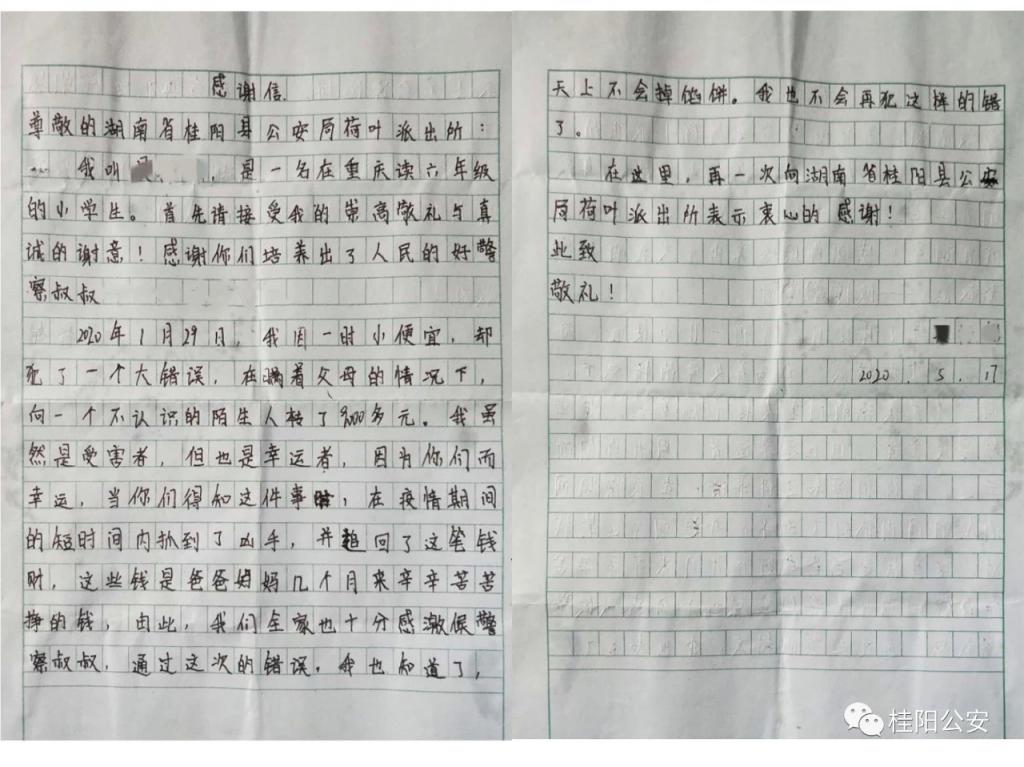 感谢信.
尊敬的湖南省桂阳县公安局荷叶派出所:
我叫 ，是一名在重庆读六年级
的小学生。首先请接受我的崇高敬礼与真
诚的谢意!感谢你们培养出了人民的好警
察叔叔
2020年1月29日，我因一时小便宜，却
犯了一个大错误，在瞒着父母的情况下，
向一个不认识的陌生人转了9000多元。我虽
然是受害者，但也是幸运者，因为你们而
幸运，当你们得知这件事时，在疫情期间
的短时间内抓到了凶手，并追回了这笔钱
财，这些钱是爸爸妈妈几个月来辛辛苦苦
挣的钱，由此，我们全家也十分感激候警
察叔叔，通过这次的错误，我也知道了，
天上不会掉馅饼。我也不会再犯这样的错
了。
在这里，再一次向湖南省桂阳县公安
局荷叶派出所表示衷心的感谢!
此致
敬礼!
2020.5.17
桂阳公安